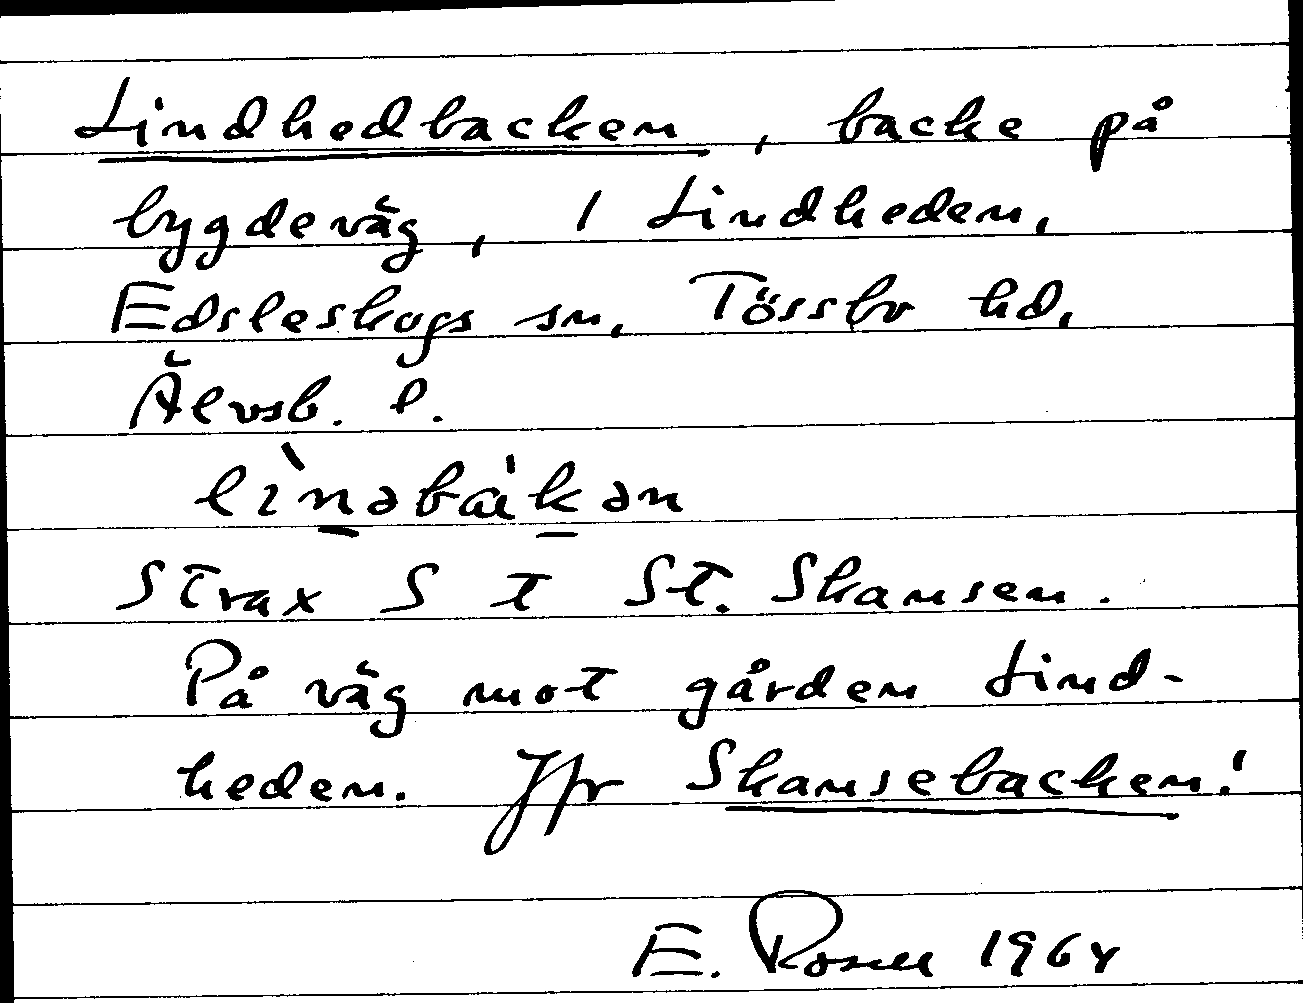 Lindhedbacken, backe på
bygdeväg, 1 Lindheden,
Edsleskogs sn. Tössbo hd,
Älvsb. l.
lìnəbák ən
Strax S t St. Skansen.
På väg mot gården Lind-
heden. Jfr Skansebacken!
E. 1964